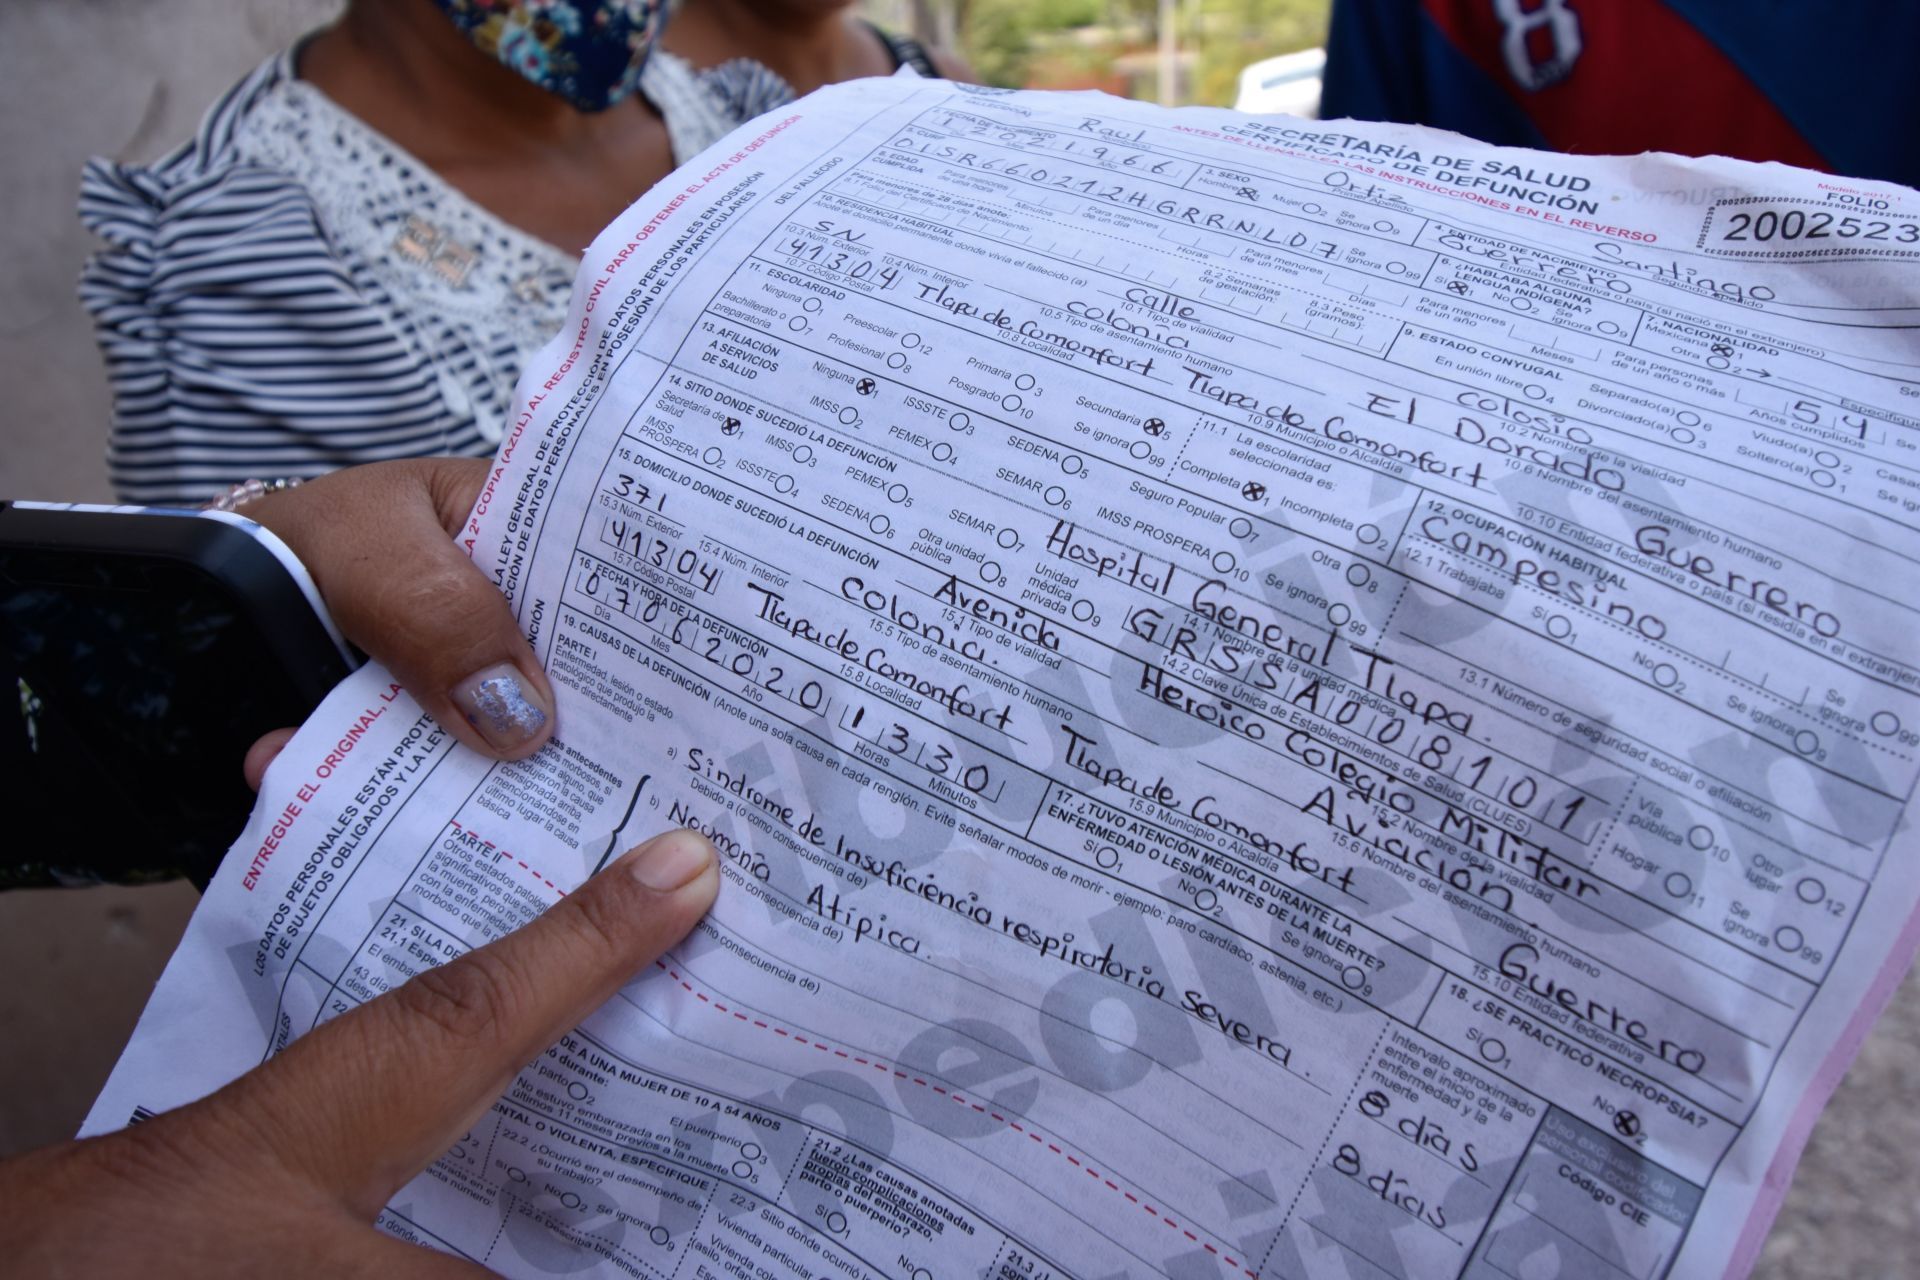 SECRETARÍA DE SALUD
CERTIFICADO DE DEFUNCIÓN
ANTES DE LLENAR LEA LAS INSTRUCCIONES EN EL REVERSO
Modelo 2017.1
FOLIO
2002523
Raul Ortiz Santiago
Primer Apellido Segundo Apellido
2. FECHA DE NACIMIENTO 12021966
3. SEXO Hombre 1 Mujer 2 Se ignora 9
4. ENTIDAD DE NACIMIENTO Guerrero
Entidad federativa o país (si nació en el extranjero)
5. CURP OISR660212HGRRNL07
6. ¿HABLABA ALGUNA LENGUA INDÍGENA? Sí 1 No 2 Se ignora 9
7. NACIONALIDAD Mexicana 1 Otra 2
8. EDAD CUMPLIDA
Para menores de una hora Minutos
Para menores de un día Horas Se ignora 99
Para menores de un mes Días
Para menores de un año Meses
Para personas de un año o más 54 Años cumplidos
Para menores de 28 días anote:
8.1 Folio del Certificado de Nacimiento:
8.2 Semanas de gestación:
8.3 Peso (gramos):
9. ESTADO CONYUGAL
En unión libre 4 Separado(a) 6 Viudo(a) 2
Divorciado(a) 3 Soltero(a) 1
10. RESIDENCIA HABITUAL
Anote el domicilio permanente donde vivía el fallecido (a)
calle colosio
10.1 Tipo de vialidad 10.2 Nombre de la vialidad
SN colonia El Dorado
10.3 Num. Exterior 10.4 Núm. Interior 10.5 Tipo de asentamiento humano 10.6 Nombre del asentamiento humano
41304 Tlapa de Comonfort Tlapa de Comonfort Guerrero
10.7 Código Postal 10.8 Localidad 10.9 Municipio o Alcaldía 10.10 Entidad federativa o país (si residía en el extranjero)
11. ESCOLARIDAD
Ninguna 1 Preescolar 12 Primaria 3 Secundaria 5
Bachillerato o preparatoria 7 Profesional 8 Posgrado 10 Se ignora 99
11.1 La escolaridad seleccionada es:
Completa 1 Incompleta 2
12. OCUPACIÓN HABITUAL
Campesino
12.1 Trabajaba Sí 1 No 2 Se ignora 9
13. AFILIACIÓN A SERVICIOS DE SALUD
Ninguna 1 ISSSTE 3 SEDENA 5 Seguro Popular 7 Otra 8
IMSS 2 PEMEX 4 SEMAR 6 IMSS PROSPERA 10 Se ignora 99
13.1 Número de seguridad social o afiliación
14. SITIO DONDE SUCEDIÓ LA DEFUNCIÓN
Secretaría de Salud 1 IMSS 3 PEMEX 5 SEMAR 7
IMSS PROSPERA 2 ISSSTE 4 SEDENA 6 Otra unidad pública 8 Unidad médica privada 9
Hospital General Tlapa.
14.1 Nombre de la unidad médica
GRSSA008101
14.2 Clave Única de Establecimientos de Salud (CLUES)
Vía pública 10 Otro lugar 12
Hogar 11 Se ignora 99
15. DOMICILIO DONDE SUCEDIÓ LA DEFUNCIÓN
Avenida Heroico Colegio Militar
15.1 Tipo de vialidad 15.2 Nombre de la vialidad
371 Colonia. Aviación
15.3 Núm. Exterior 15.4 Núm. Interior 15.5 Tipo de asentamiento humano 15.6 Nombre del asentamiento humano
41304 Tlapa de Comonfort Tlapa de Comonfort Guerrero
15.7 Código Postal 15.8 Localidad 15.9 Municipio o Alcaldía 15.10 Entidad federativa
16. FECHA Y HORA DE LA DEFUNCIÓN
07062020 1330
Día Mes Año Horas Minutos
17. ¿TUVO ATENCIÓN MÉDICA DURANTE LA ENFERMEDAD O LESIÓN ANTES DE LA MUERTE?
Sí 1 No 2 Se ignora 9
18. ¿SE PRACTICÓ NECROPSIA?
Sí 1 No 2
19. CAUSAS DE LA DEFUNCIÓN (Anote una sola causa en cada renglón. Evite señalar modos de morir - ejemplo: paro cardiaco, astenia, etc.)
PARTE I
Enfermedad, lesión o estado patológico que produjo la muerte directamente
a) Sindrome de Insuficiencia respiratoria severa.
Debido a (o como consecuencia de)
b) Neumonia Atípica.
como consecuencia de)
como consecuencia de)
Intervalo aproximado entre el inicio de la enfermedad y la muerte
8 días
8 días
Código CIE
PARTE II
DE A UNA MUJER DE 10 A 54 AÑOS
El puerperio 3
No estuvo embarazada en los últimos 11 meses previos a la muerte 5
21.2 ¿Las causas anotadas fueron complicaciones propias del embarazo, parto o puerperio?
Sí 1
22.2 ¿Ocurrió en el desempeño de su trabajo?
Sí 1 No 2 Se ignora 9
ENTREGUE EL ORIGINAL, LA
LA 2ª COPIA (AZUL) AL REGISTRO CIVIL PARA OBTENER EL ACTA DE DEFUNCIÓN
DEL FALLECIDO
8